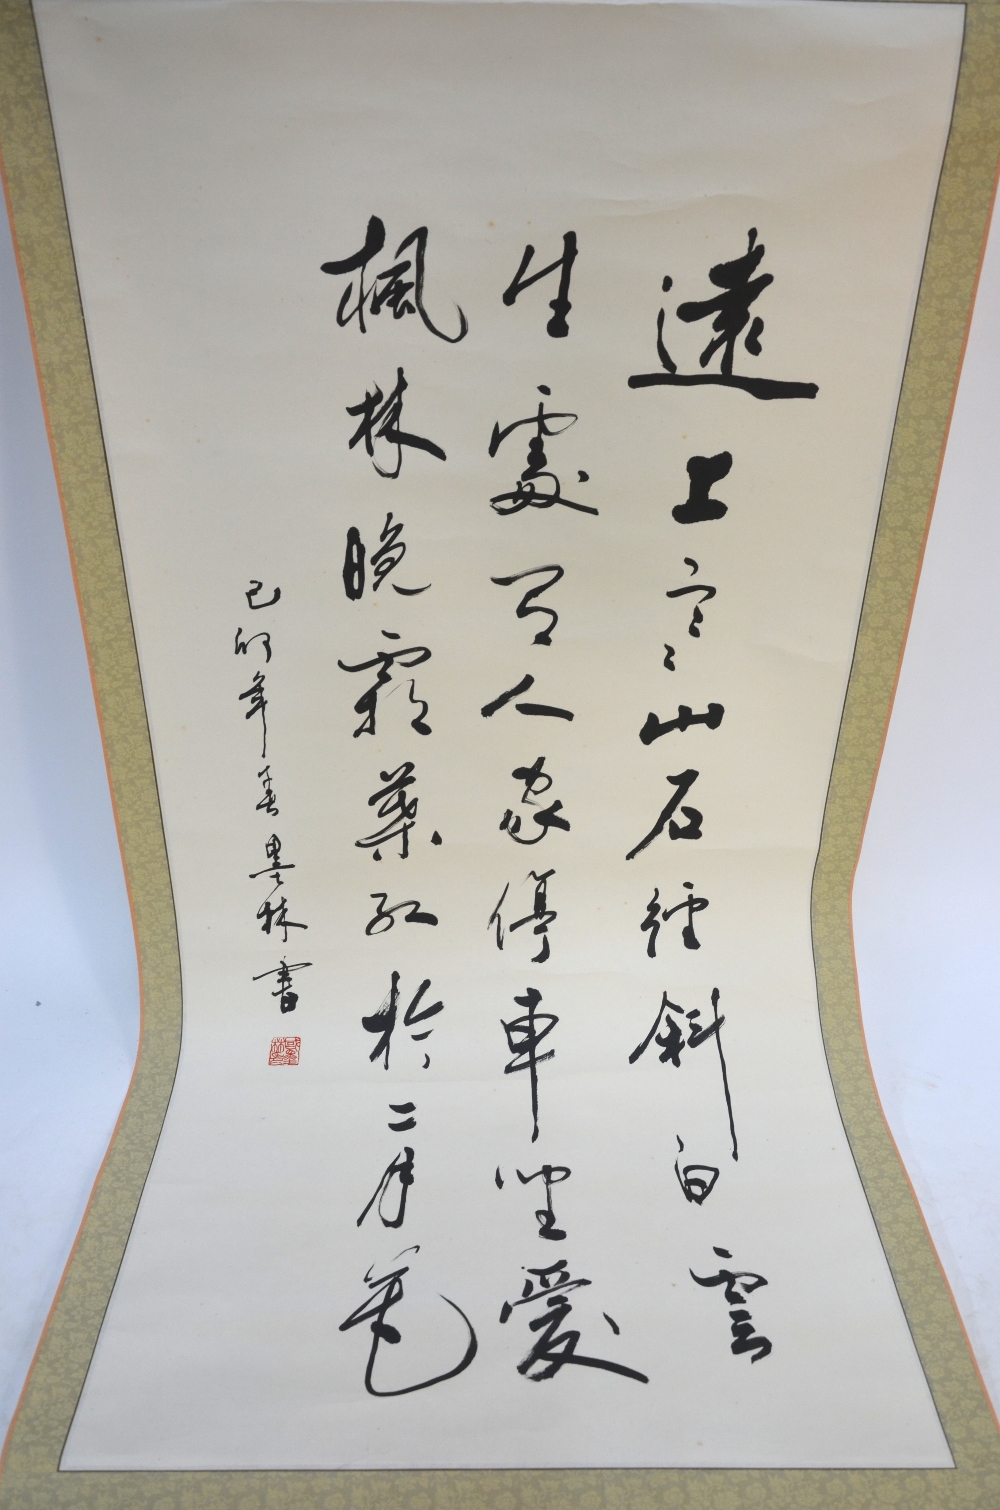 遠上寒山石徑斜白雲
生處有人家停車坐愛
楓林晚霜葉紅於二月花
己卯年春墨林書